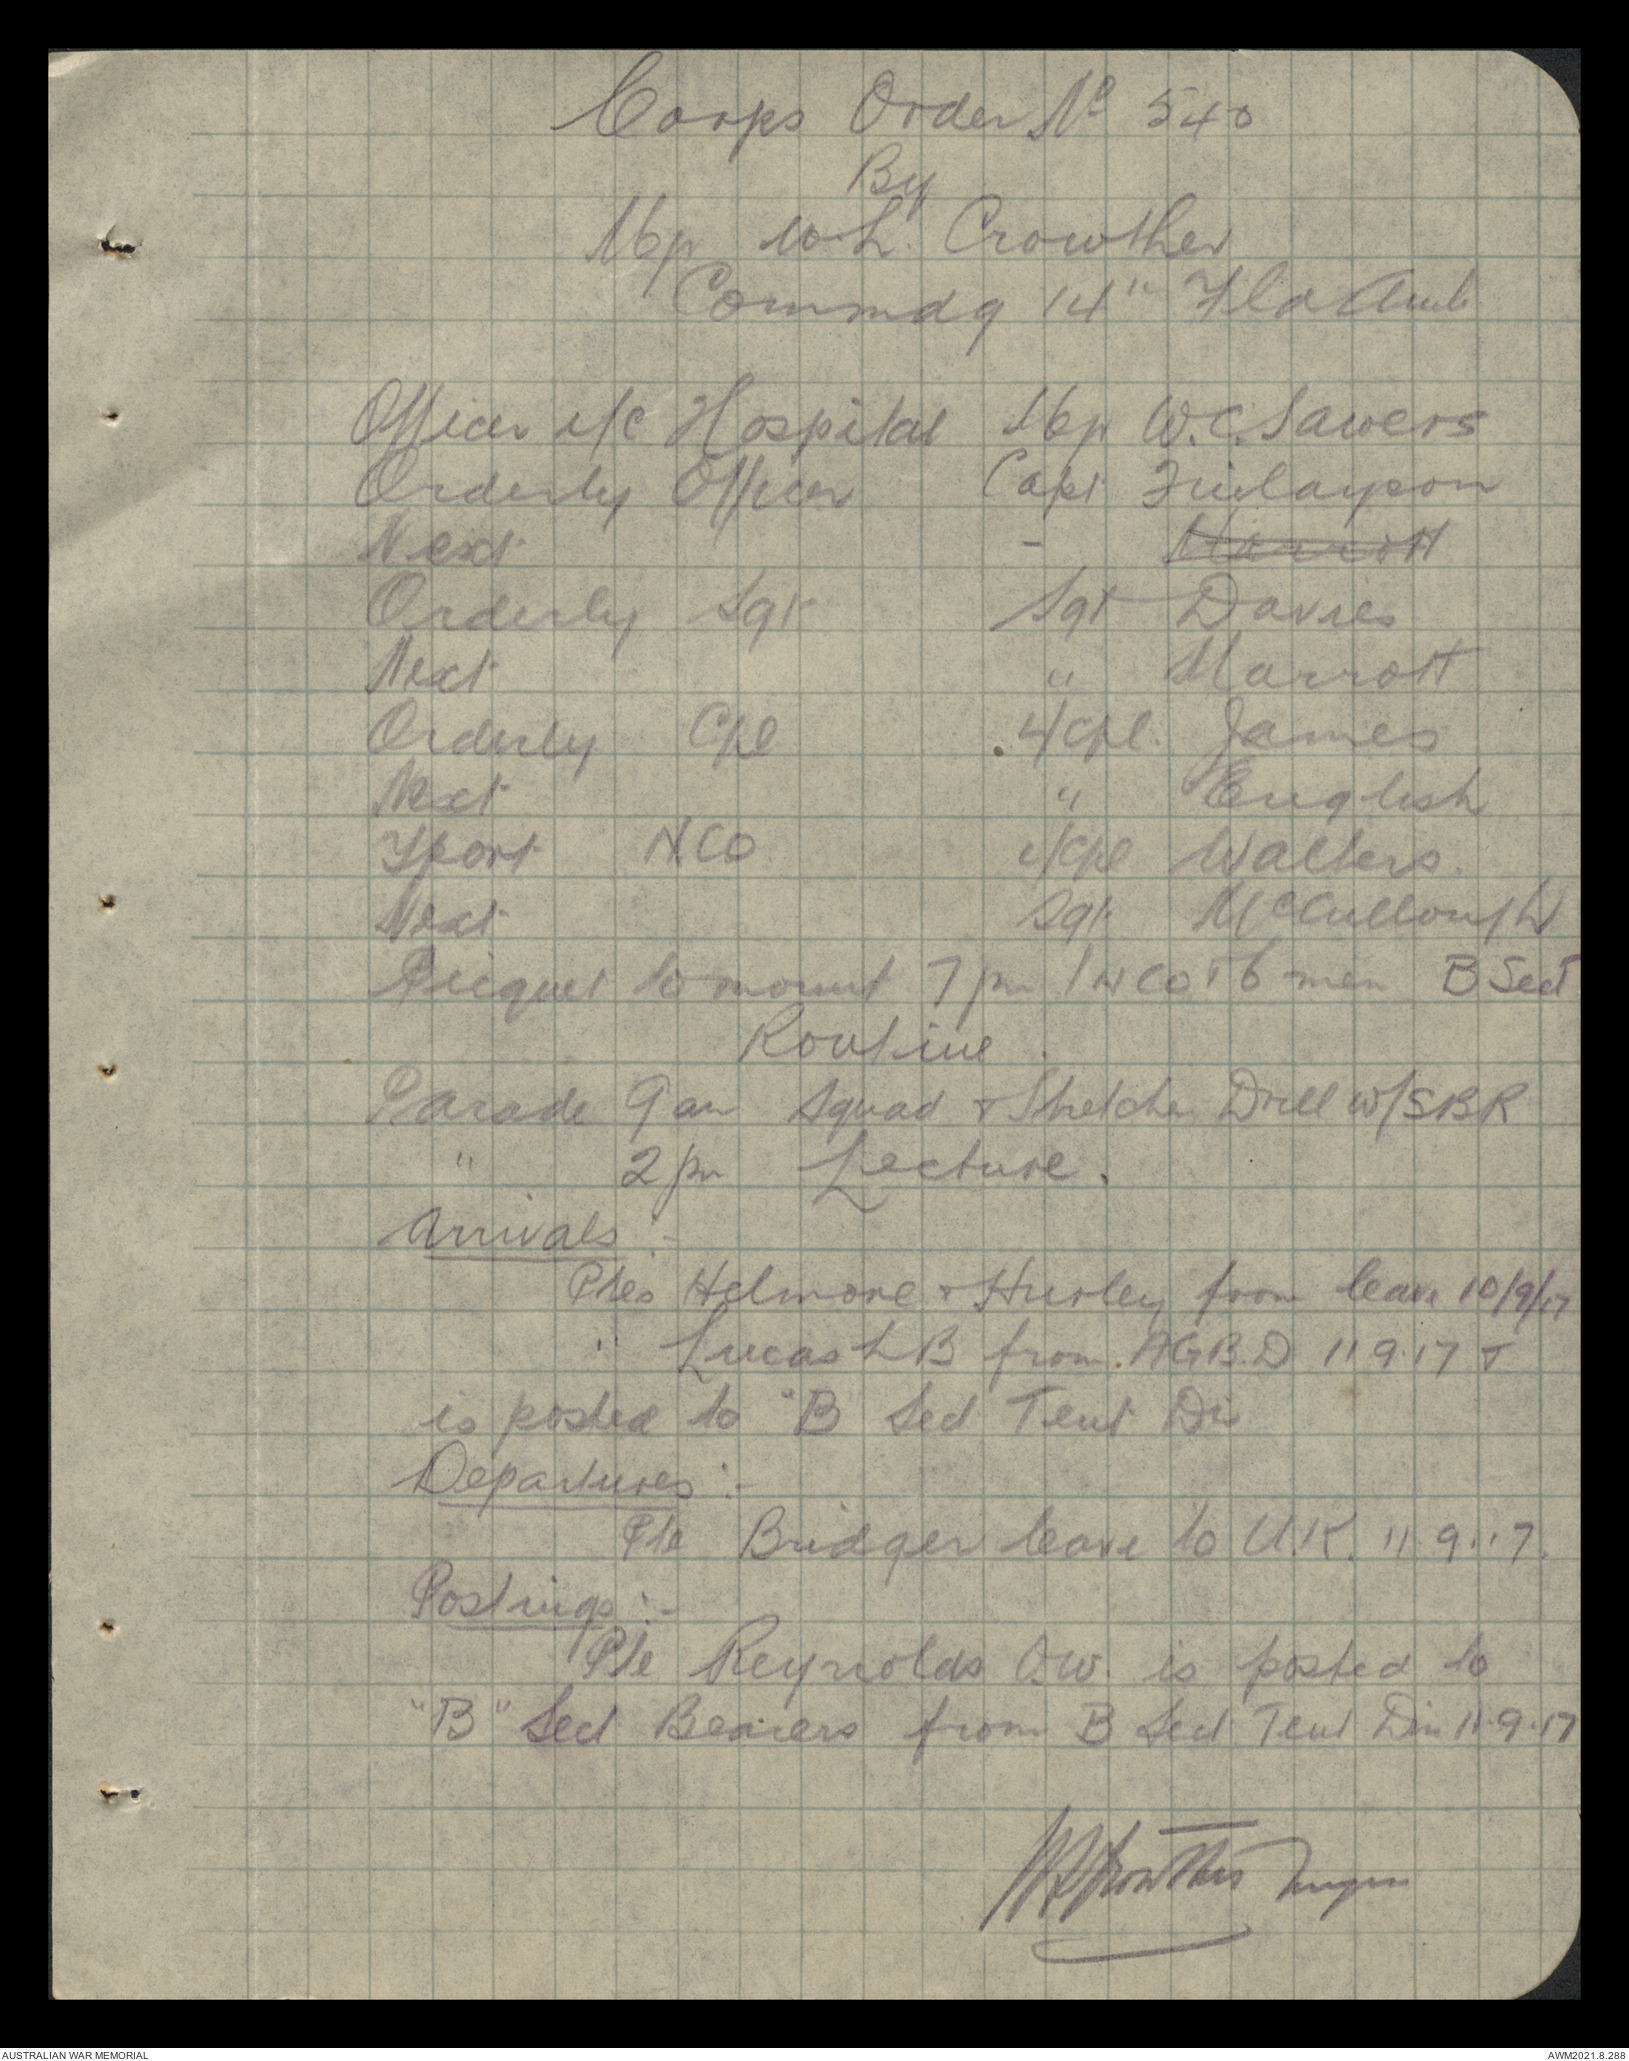 Corps Order No 540
By
Mjr W.L. Crowther
Commdg 14" Fld Amb
Officer i/c Hospital Mjr W.C. Sawers
Orderly Officer Capt Finlayson
Next - Marrott
Orderly Sgt Sgt Davies
Next " Marrott
Orderly Cpl L/Cpl. James
Next " English
T/port NCO L/Cpl Walters.
Next Sgt McCullough
Picquet to mount 7 pm 1 NCO + 6 men B Sect
Routine.
Parade 9 am Squad & Stretcher Drill w/SBR
" 2 pm Lecture.
Arrivals :-
Ptes Helmore & Hurley from leave 10/9/17
" Lucas L B from A.G.B.D 11 9.17 &
is posted to "B Sect Tent Div
Departures :-
Pte Bridger leave to U.K. 11.9.17.
Postings :-
Pte Reynolds O.W. is posted to
"B" Sect Bearers from B Sect Tent Div 11.9.17
WL Crowther Major
AUSTRALIAN WAR MEMORIAL AWM2021.8.288